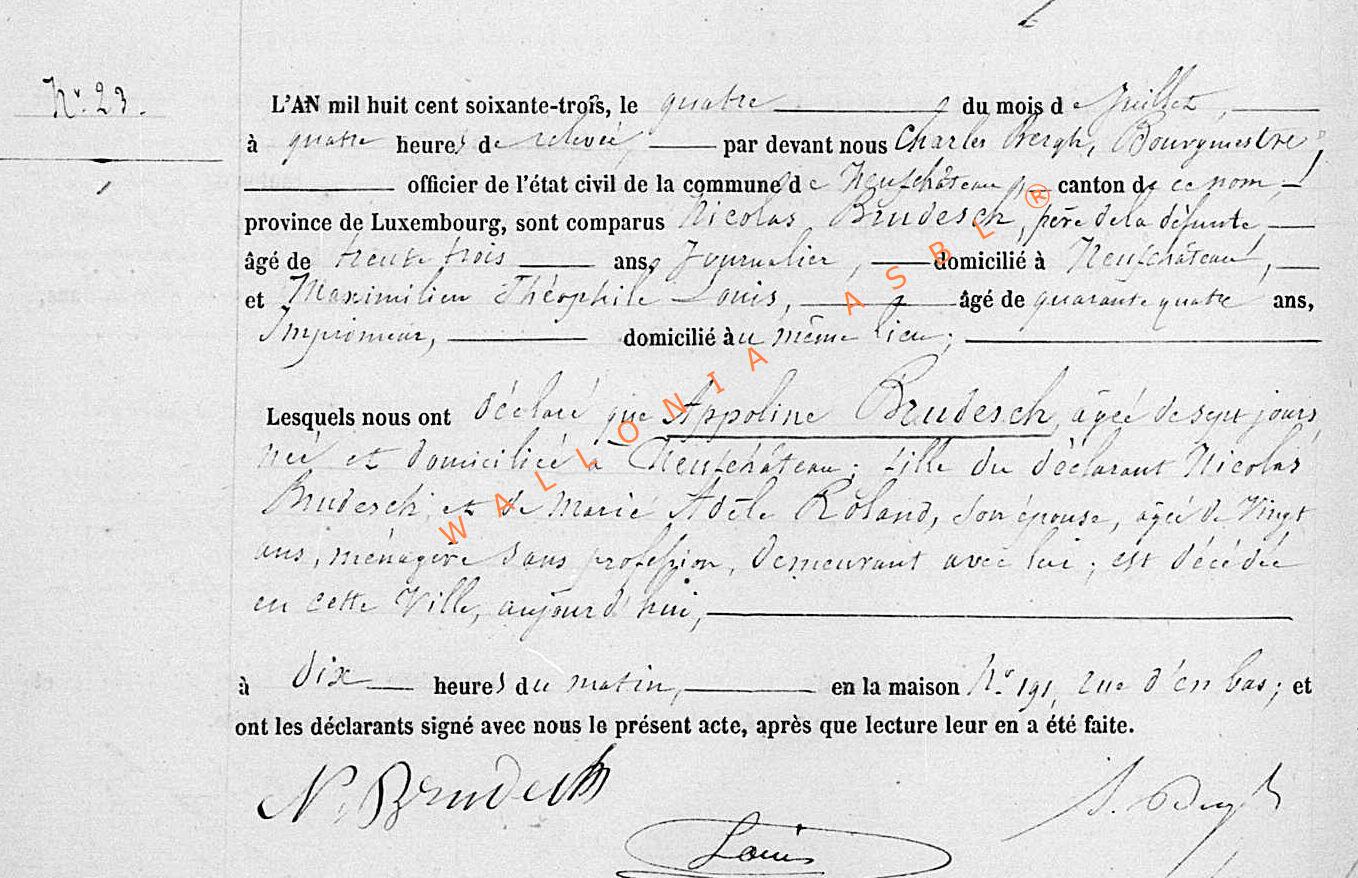 N° 23.
L'AN mil huit cent soixante-trois, le quatre du mois de Juillet,
à quatre heures de relevée, par devant nous Charles Bergh, Bourgmestre,
officier de l'état civil de la commune de Neufchâteau, canton de ce nom,
province de Luxembourg, sont comparus Nicolas Brudesch, père de la défunte
âgé de trente trois ans, Journalier, domicilié à Neufchâteau,
et Maximilien Théophile Louis, âgé de quarante quatre ans,
Imprimeur, domicilié au même lieu;
Lesquels nous ont déclaré que Appoline Brudesch, âgée de sept jours,
née et domiciliée à Neufchâteau; fille du déclarant Nicolas
Brudesch, et de Marie Adèle Roland, son épouse, âgée de Vingt
ans, ménagère sans profession, demeurant avec lui; est décédée
en cette Ville, aujourd'hui,
à dix heures du matin, en la maison N° 191, rue d'en bas; et
ont les déclarants signé avec nous le présent acte, après que lecture leur en a été faite.
N. Brudesch
Louis
WALLONIA ASBL ®